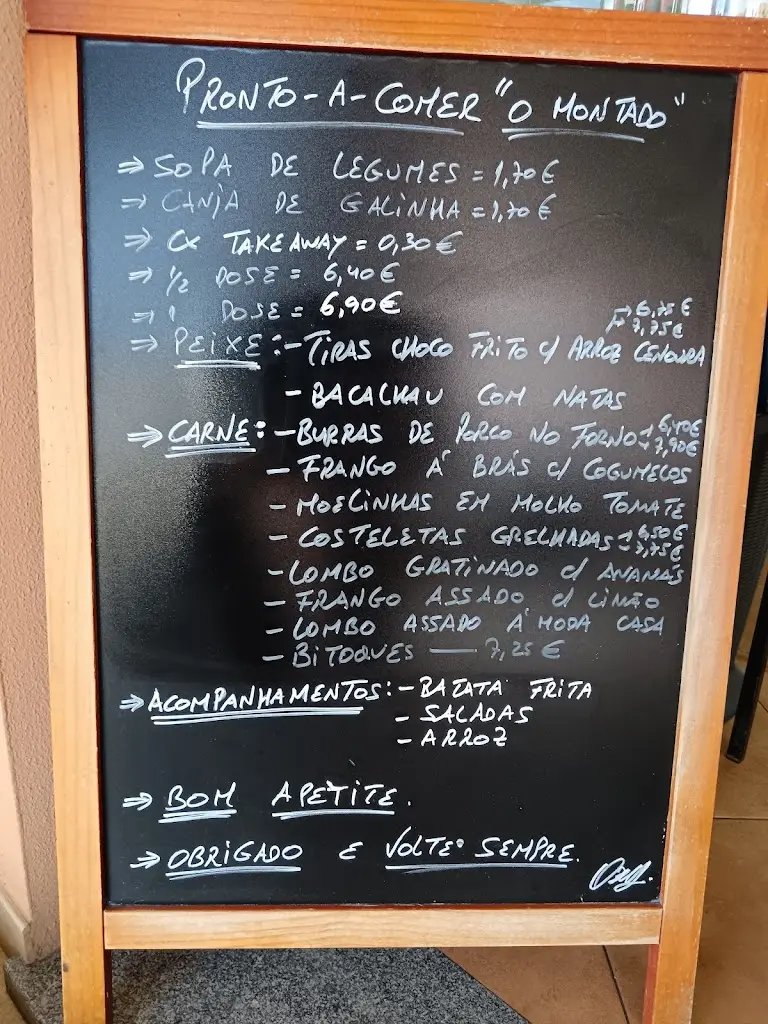 PRONTO-A-COMER "O MONTADO"
⇒ SOPA DE LEGUMES = 1,70€
⇒ CANJA DE GALINHA = 1,70€
⇒ CX TAKEAWAY = 0,30€
⇒ 1/2 DOSE = 6,40€
⇒ 1 DOSE = 6,90€
⇒ PEIXE: - TIRAS CHOCO FRITO C/ ARROZ CENOURA → 6,75€ → 7,75€
- BACALHAU COM NATAS
⇒ CARNE: - BURRAS DE PORCO NO FORNO → 6,40€ → 7,90€
- FRANGO Á BRÁS C/ COGUMELOS
- MOELINHAS EM MOLHO TOMATE
- COSTELETAS GRELHADAS → 6,50€ → 7,75€
- LOMBO GRATINADO C/ ANANÁS
- FRANGO ASSADO C/ LIMÃO
- LOMBO ASSADO Á MODA CASA
- BITOQUES — 7,25€
⇒ ACOMPANHAMENTOS: - BATATA FRITA
- SALADAS
- ARROZ
⇒ BOM APETITE.
⇒ OBRIGADO E VOLTE SEMPRE.